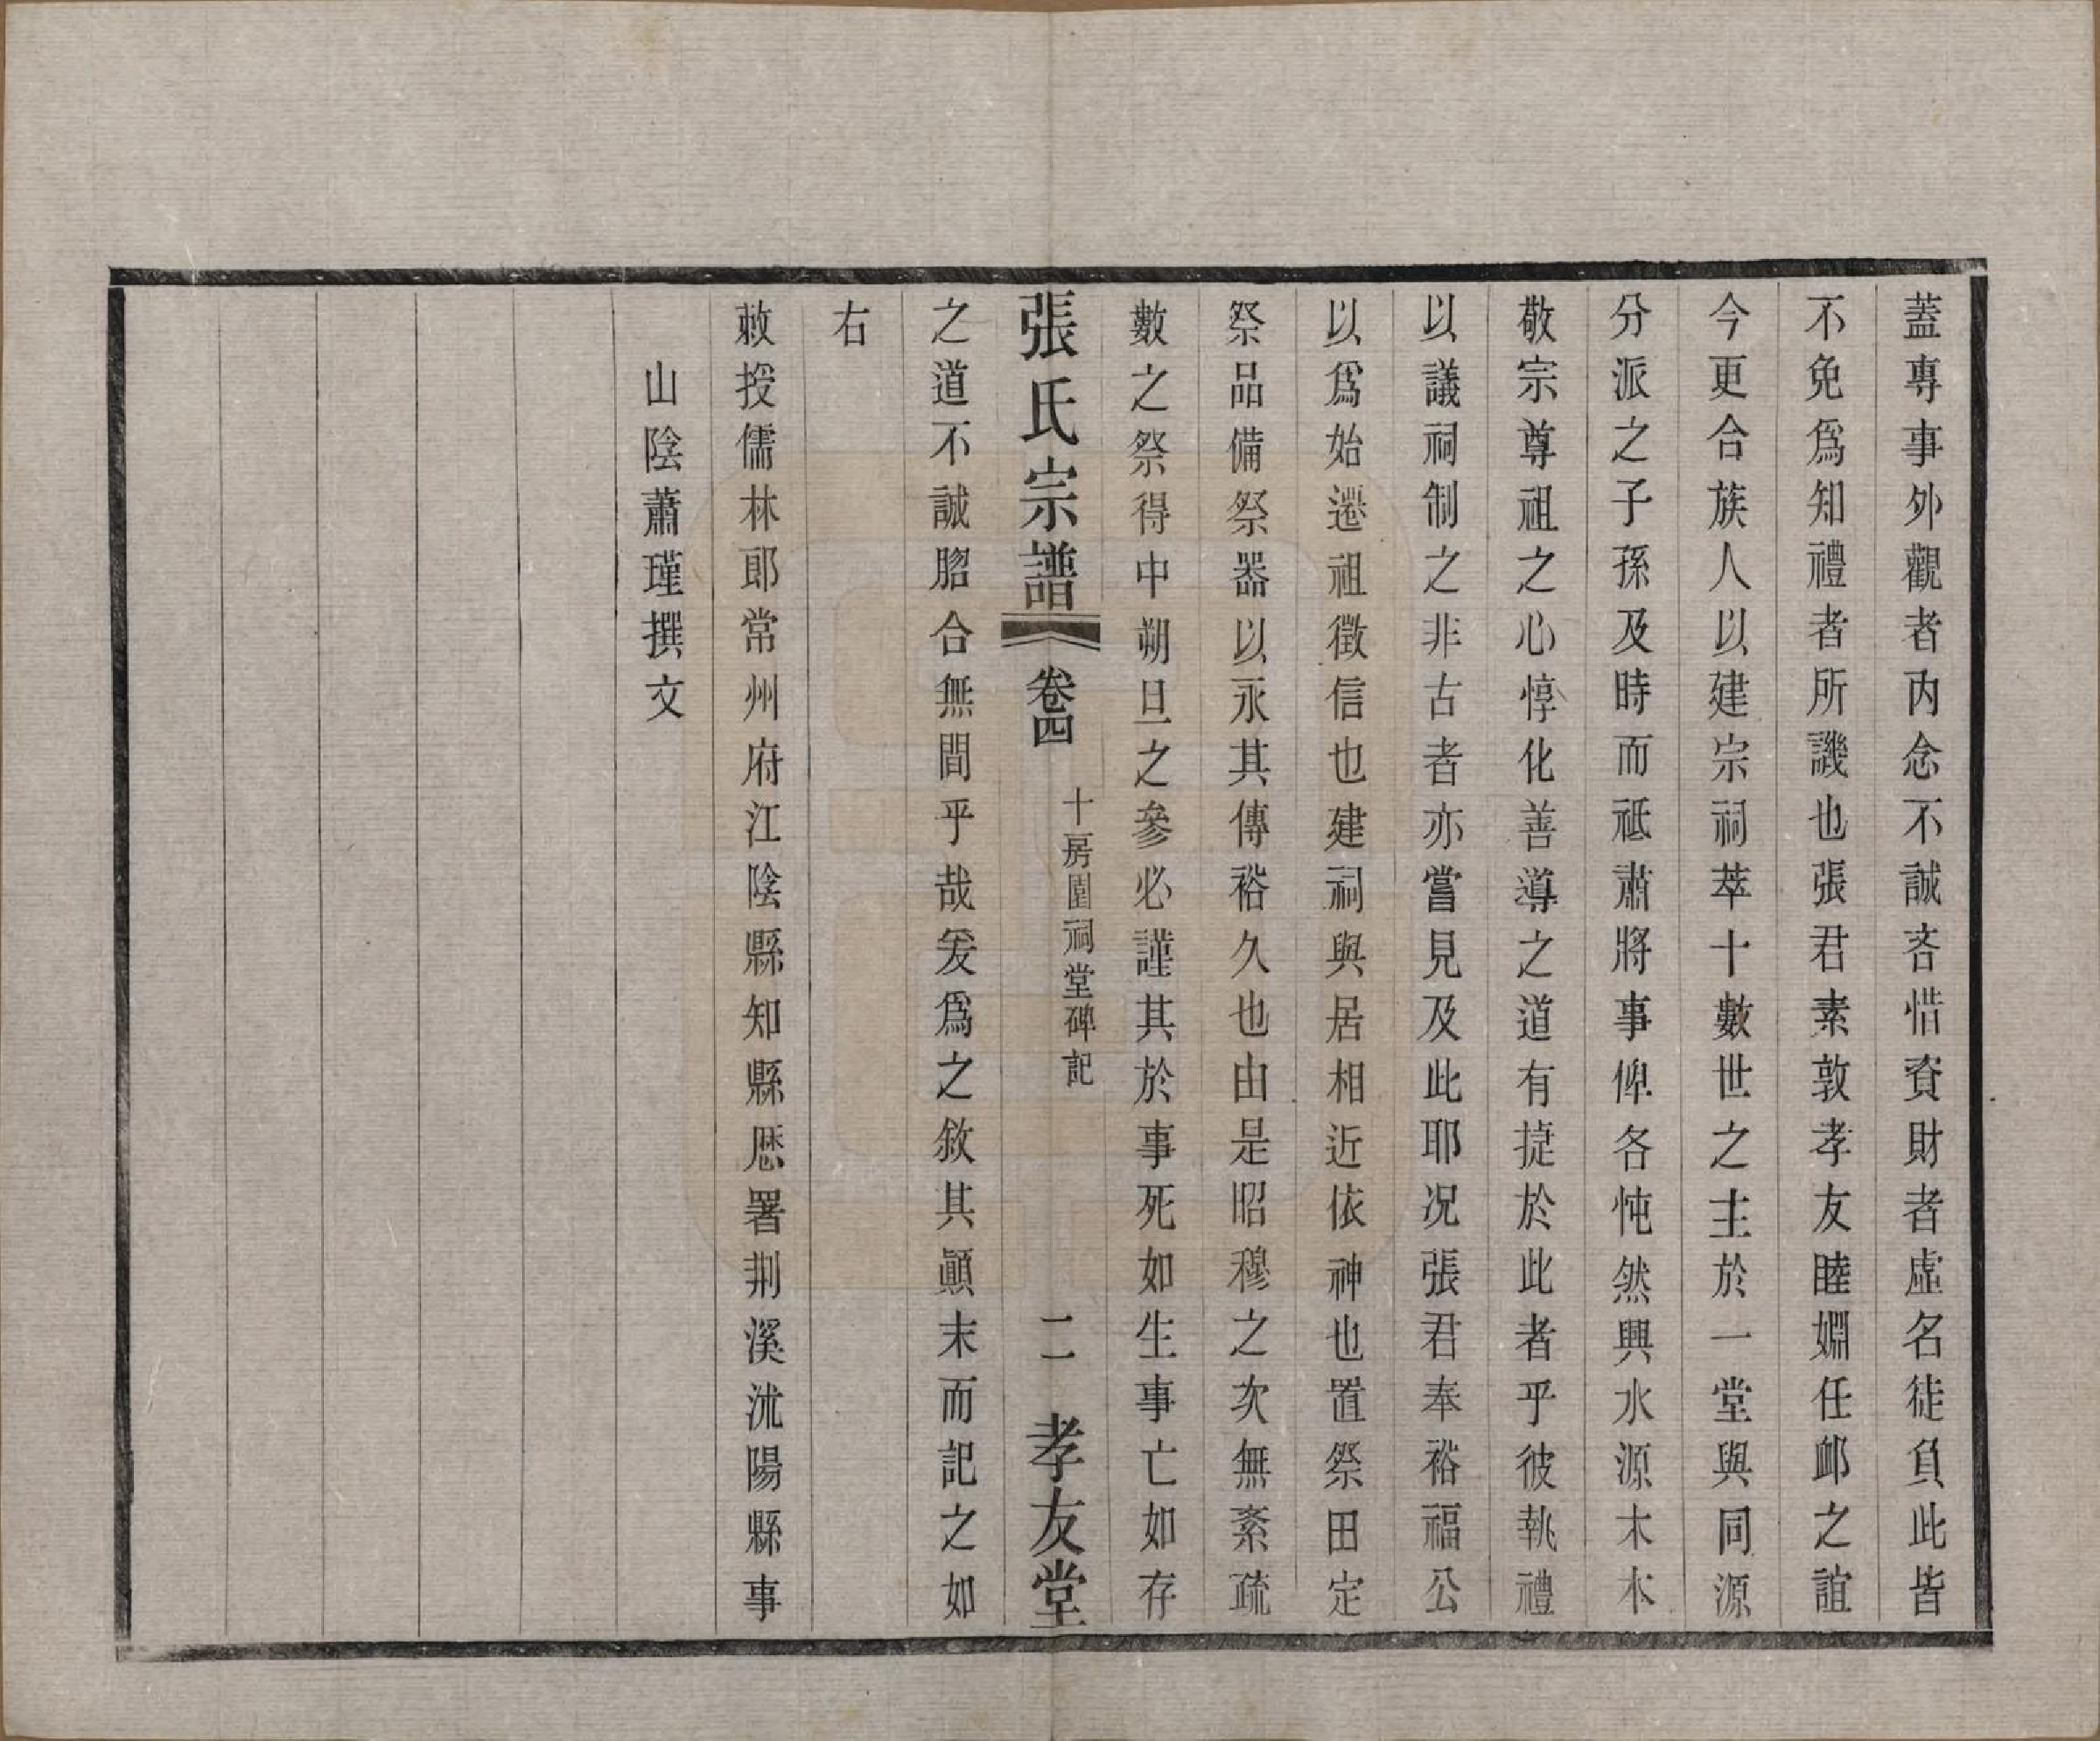 蓋專事外觀者內念不誠吝惜資財者虛名徒負此皆
不免爲知禮者所譏也張君素敦孝友睦婣任䘏之誼
今更合族人以建宗祠萃十數世之主於一堂與同源
分派之子孫及時而祗肅將事俾各忳然興水源木本
敬宗尊祖之心惇化善導之道有㨗於此者乎彼執禮
以議祠制之非古者亦嘗見及此耶况張君奉裕福公
以爲始遷祖徵信也建祠與居相近依神也置祭田定
祭品備祭器以永其傳裕久也由是昭穆之次無紊疏
數之祭得中朔旦之參必謹其於事死如生事亡如存
張氏宗譜 卷四 十房圍祠堂碑記 二 孝友堂
之道不誠脗合無間乎哉爰爲之敘其顚末而記之如
右
敕授儒林郎常州府江陰縣知縣歷署荆溪沭陽縣事
山陰蕭瑾撰文